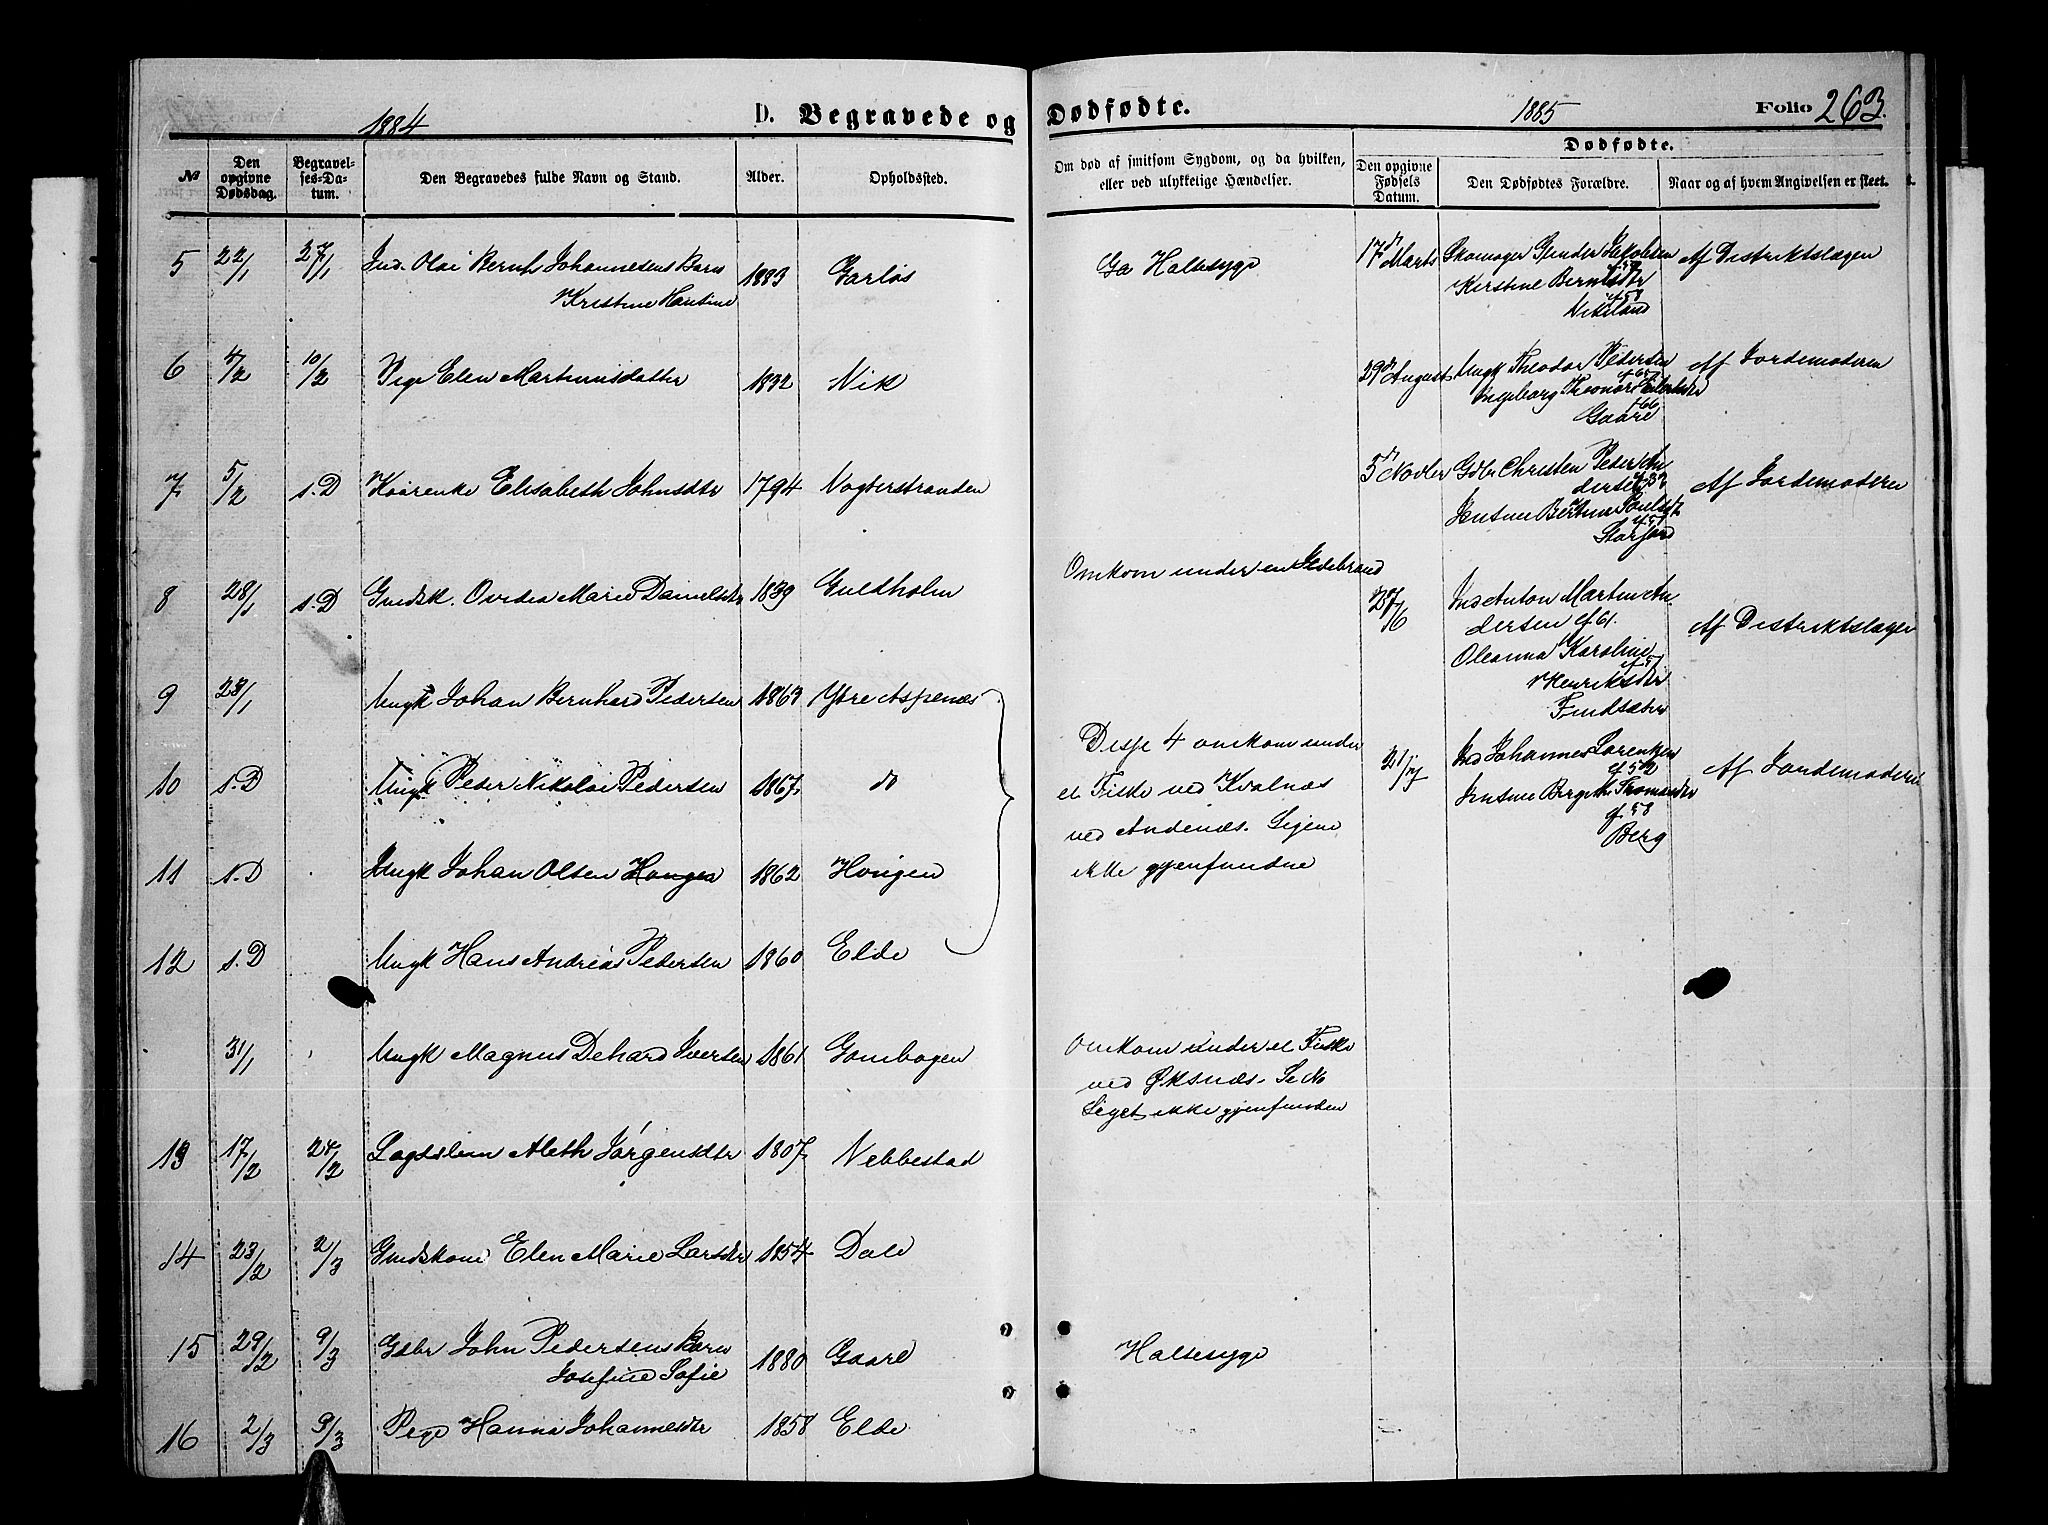 1884
D. Begravede og
№
Den opgivne Dødsdag.
Begravelses-Datum.
Den Begravedes fulde Navn og Stand.
Alder.
Opholdssted.
5 22/1 27/1 Ind. Olai Bernh Johannesens Barn 1883 Garlos
Kristine Hansine
6 4/2 10/2 Pige Elen Martinusdatter 1832 Vik
7 5/2 s.D Kaarenke Elisabeth Johnsdtr 1794 Vogterstranden
8 28/1 s.D Gmdsk. Ovidea Marie Danielsdtr 1839 Guldholm
9 23/1 Ungk Johan Bernhard Pedersen 1863 Ytre Aspenæs
10 s.D Ungk Peder Nikolai Pedersen 1867 do
11 s.D Ungk Johan Olsen Hongen 1862 Hongen
12 s.D Ungk Hans Andreas Pedersen 1860 Elde
31/1 Ungk Magnus Dehard Iversen 1861 Gombogen
13 17/2 24/2 Lagdslem Aleth Jørgensdtr 1807 Nebbestad
14 23/2 2/3 Gmdskone Elen Marie Larsdtr 1854 Dale
15 29/2 9/3 Gdbr John Pedersens Barn 1880 Gaare
Josefine Sofie
16 2/3 9/3 Pige Hanna Johannesdtr 1858 Elde
Dødfødte.
1885
Folio 263.
Om død af smitsom Sygdom, og da hvilken,
eller ved ulykkelige Hændelser.
Dødfødte.
Den opgivne Fødsels Datum.
Den Dødfødtes Forældre.
Naar og af hvem Angivelsen er skeet.
Ga Halssyge
Omkom under en Ildebrand
Disse 4 omkom under
et Fiske ved Kvalnæs
ved Andenæs. Ligene
ikke gjenfundne
Omkom under et Fiske
ved Øksnæs.
Liget ikke gjenfunden
Halssyge
17d Marts Skomager Jakobsen Af Distriktslægen
Kirstine Berntsdtr
f 58
29d August Ungk Theodor Pedersen Af Jordemoderen
Ingeborg
f 66
Gaare
5d Novbr Gdbr Christen Peder An
dersen Af Jordemoderen
Jentine
27/6 Ind Anton Martin An
dersen f 61. Af Distriktslægen
Oleanna Karoline
Henriksdtr
Findsæter
21/7 Ind Johannes Lorentzen
f 52 Af Jordemoderen
Jentine Bergithe Thomasdtr
f 58
Berg